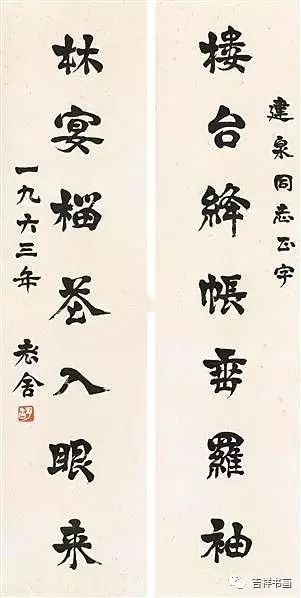 建泉同志正字
樓台絳帳垂羅袖
林宴榴花入眼来
一九六三年 老舍
吉祥书画